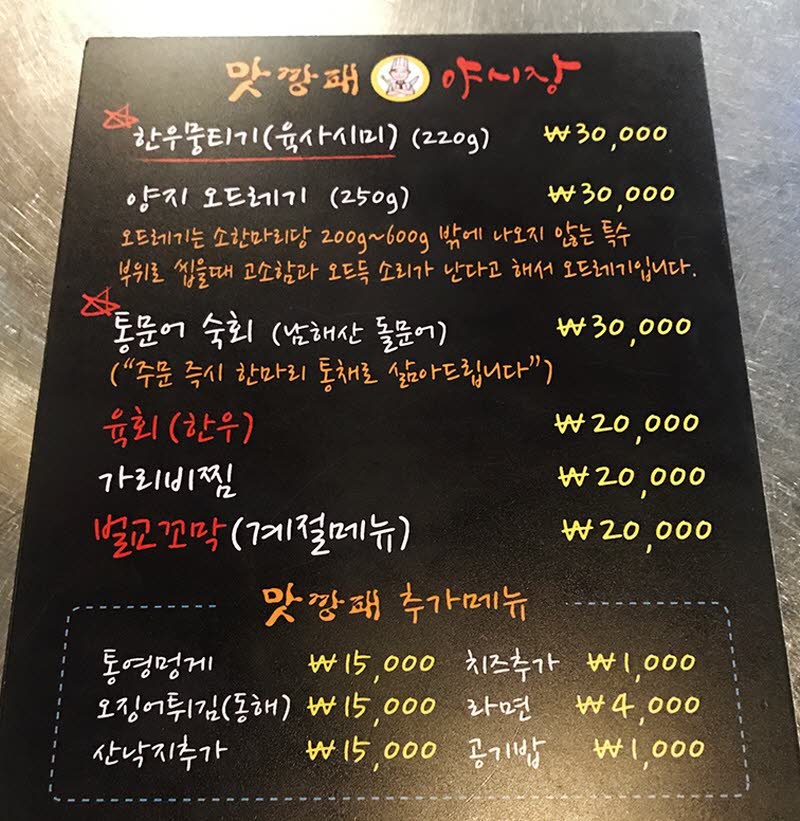 맛깡패 야시장
한우뭉티기(육사시미) (220g) ₩30,000
양지 오드레기 (250g) ₩30,000
오드레기는 소한마리당 200g~600g 밖에 나오지 않는 특수
부위로 씹을때 고소함과 오드득 소리가 난다고 해서 오드레기입니다.
통문어 숙회 (남해산 돌문어) ₩30,000
("주문 즉시 한마리 통채로 삶아드립니다")
육회(한우) ₩20,000
가리비찜 ₩20,000
벌교꼬막(계절메뉴) ₩20,000
맛깡패 추가메뉴
통영멍게 ₩15,000 치즈추가 ₩1,000
오징어튀김(동해) ₩15,000 라면 ₩4,000
산낙지추가 ₩15,000 공기밥 ₩1,000